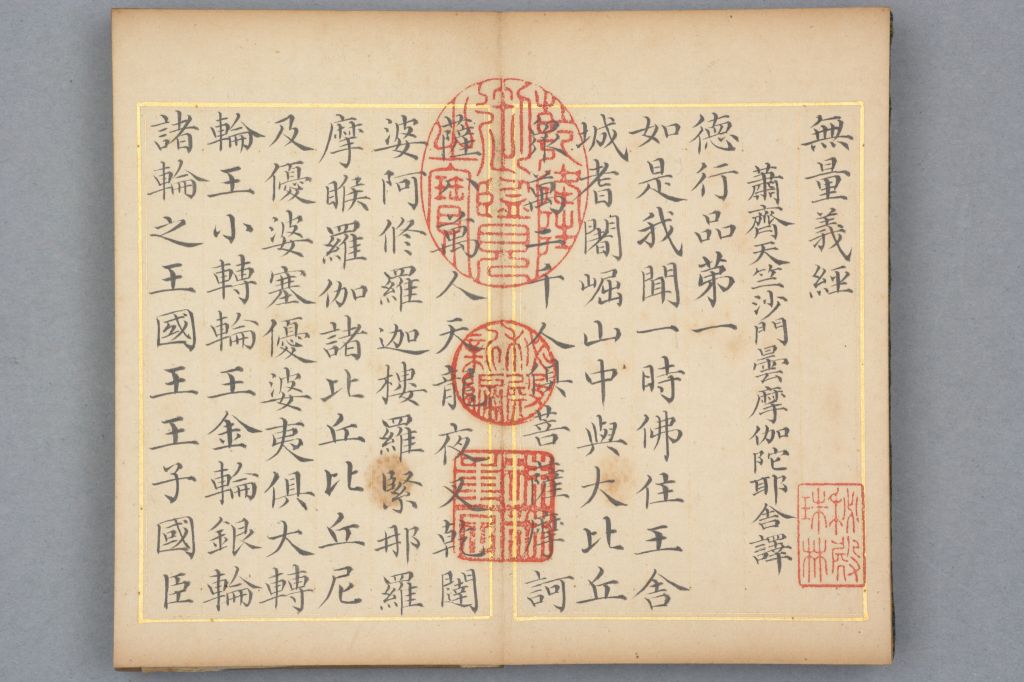 無量義經
蕭齊天竺沙門曇摩伽陀耶舍譯
德行品第一
如是我聞一時佛住王舍
城耆闍崛山中與大比丘
眾萬二千人俱菩薩摩訶
薩八萬人天龍夜叉乾闥
婆阿修羅迦樓羅緊那羅
摩睺羅伽諸比丘比丘尼
及優婆塞優婆夷俱大轉
輪王小轉輪王金輪銀輪
諸輪之王國王王子國臣
秘殿
珠林
秘殿
新編
珠林
重定